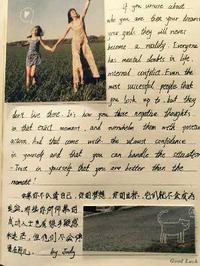 If you unsure about
who you are then your dreams
your goals they will never
become a reality. Everyone
has mental doubts in life,
internal conflict. Even the
most successful people that
you look up to. but they
don't live there. It's how you those negative thoughts
in that exact moment, and overwhelm them with positive
action. And that come with the utmost confidence
in yourself and that you can handle the situation
Trust in yourself that you are better than the
moment!
如果你不认清自己，你的梦想，你的目标，它们就不会成为
现实
by. Judy
Good Luck